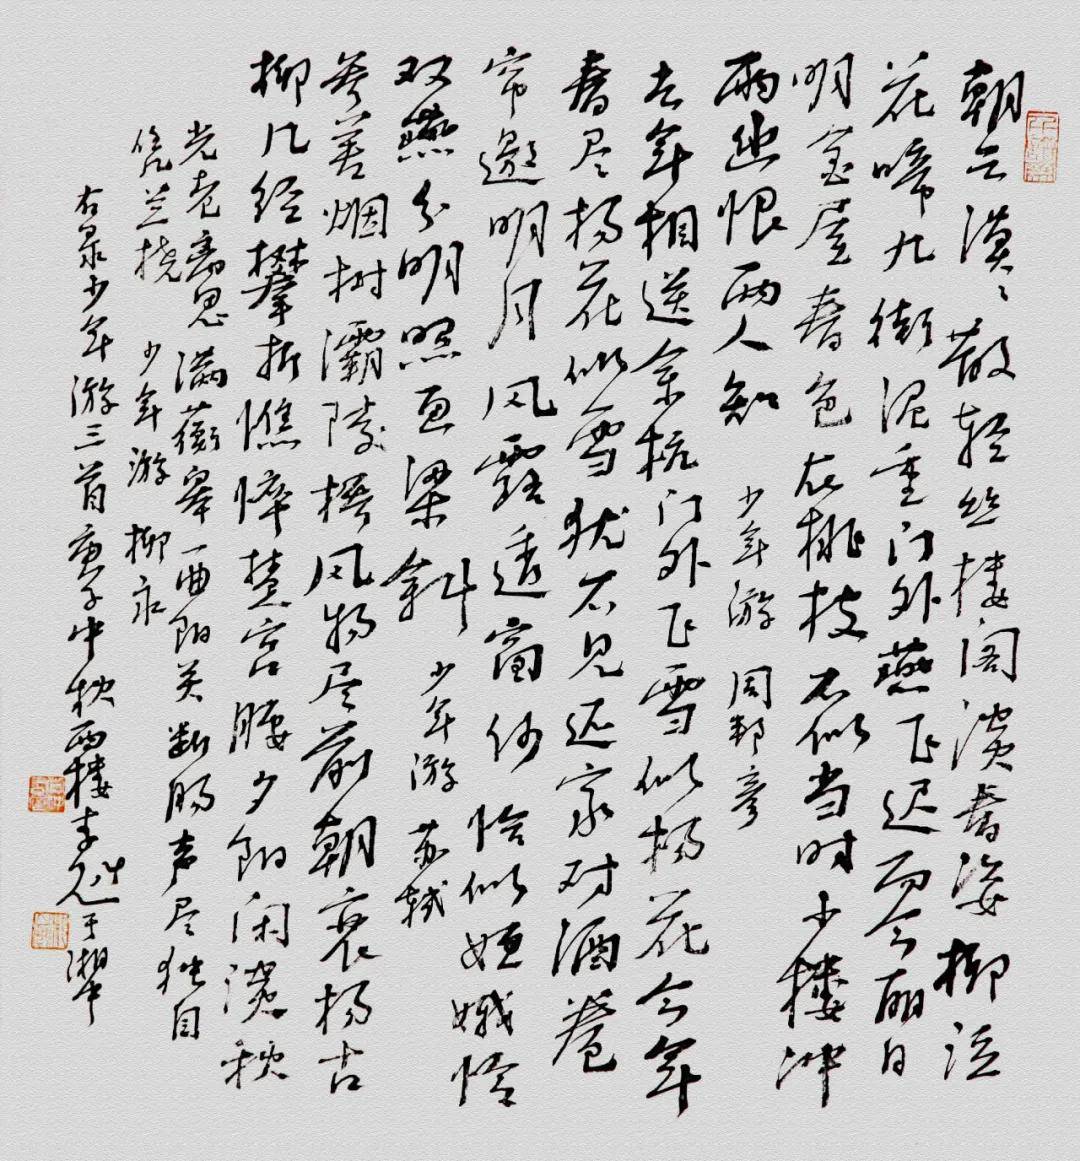 朝云漠々散轻丝楼阁淡春姿柳泣
花啼九街泥重门外燕飞迟而今丽日
明金屋春色在桃枝不似当时小楼冲
雨幽恨两人知 少年游 周邦彦
去年相送余杭门外飞雪似杨花今年
春尽杨花似雪犹不见还家对酒卷
帘邀明月风露透窗纱恰似姮娥怜
双燕分明照画梁斜 少年游 苏轼
参差烟树灞陵桥风物尽前朝衰杨古
柳几经攀折憔悴楚宫腰夕阳闲淡秋
光老离思满蘅皋一曲阳关断肠声尽独自
凭兰桡 少年游 柳永
右录少年游三首庚子中秋西楼李于湘中